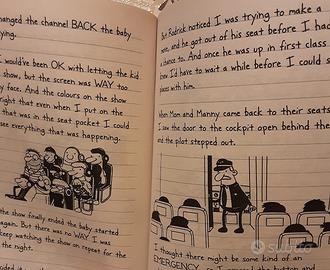 changed the channel BACK the baby
ying.
would've been OK with letting the kid
show, but the screen was WAY too
y face. And the colours on the show
right that even when I put on the
that was in the seat pocket I could
see everything that was happening.
the show finally ended the baby started
again. But there was no WAY I was
keep watching the show on repeat for the
the night.
But Rodrick noticed I was trying to make a
move, and he got out of his seat before I had
a chance to. And once he was up in first class
knew I'd have to wait a while before I could s
places with him.
When Mom and Manny came back to their seats
I saw the door to the cockpit open behind the
and the pilot stepped out.
I thought there might be some kind of an
EMERGENCY
subito